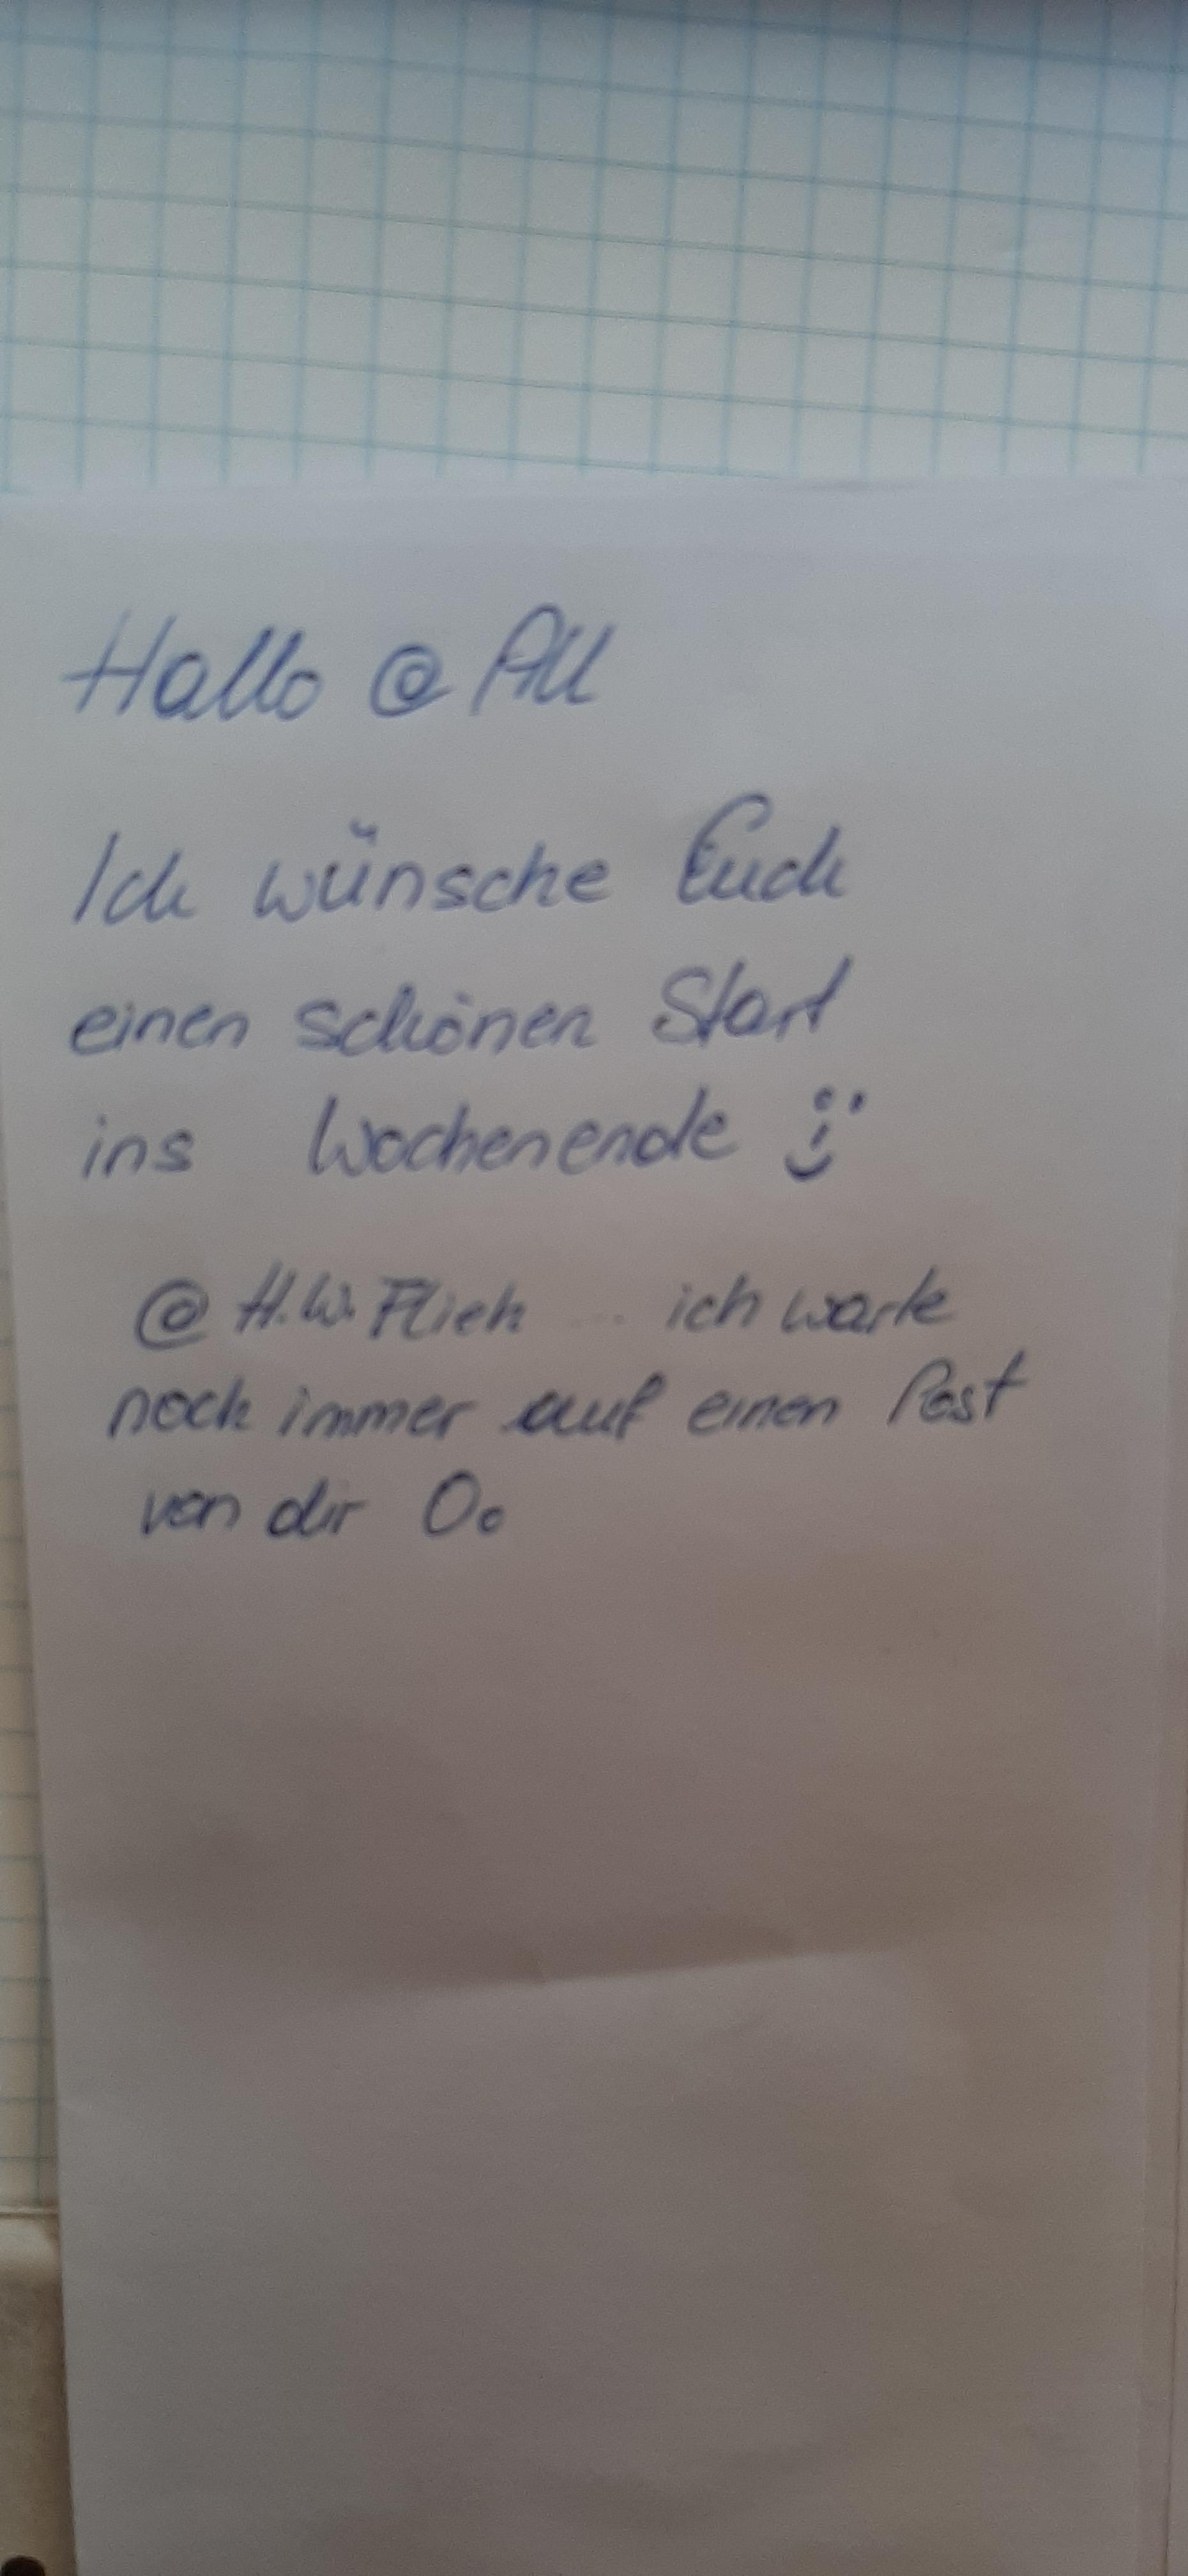 Hallo @ All
Ich wünsche Euch
einen schönen Start
ins Wochenende :)
@ H.W. ... ich warte
noch immer auf einen Post
von dir Oo